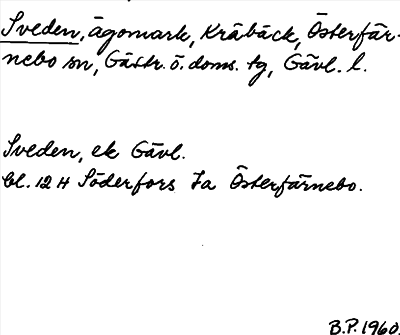 Sveden, ägomark, Kråbäck, Österfär-
nebo sn, Gästr. ö. doms. tg, Gävl. l.
Sveden, ek Gävl.
bl. 12 H Söderfors Ia Österfärnebo.
B.P. 1960.